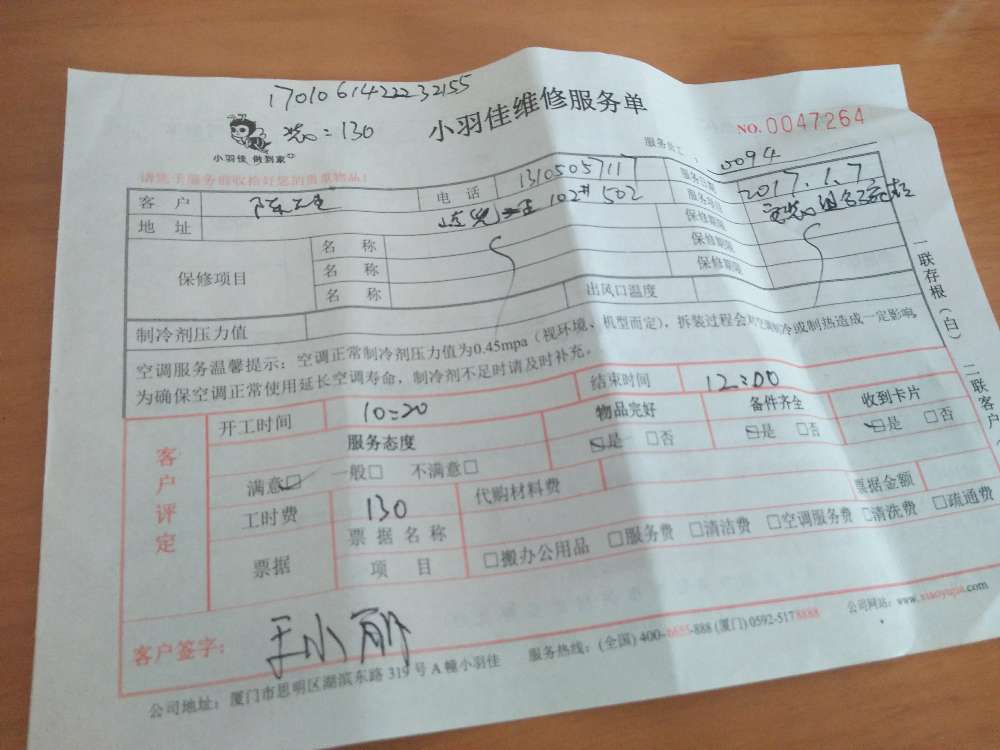 1701061422232155
小羽佳维修服务单
NO.0047264
装 = 130
小羽佳 做到家
服务员工: 0094
请您于服务前收拾好您的贵重物品!
客 户 电 话 13105057117 服务日期 2017.1.7
地 址 102# 502 服务项目
保修项目
名 称 保修期限
名 称 保修期限
名 称 保修期限
制冷剂压力值 出风口温度
空调服务温馨提示:空调正常制冷剂压力值为0.45mpa(视环境、机型而定),拆装过程会对空调制冷或制热造成一定影响,
为确保空调正常使用延长空调寿命,制冷剂不足时请及时补充。
客户评定
开工时间 10:20 结束时间 12:00
服务态度 物品完好 备件齐全 收到卡片
满意☑ 一般□ 不满意□ ☑是 □否 ☑是 □否 ☑是 □否
工时费 130 代购材料费 票据金额
票据 票据名称
项 目 □搬办公用品 □服务费 □清洁费 □空调服务费 □清洗费 □疏通费
客户签字: 王小丽
公司地址:厦门市思明区湖滨东路 319 号 A 幢小羽佳 服务热线:(全国) 400-6655-888 (厦门) 0592-5178888 公司网站:www.xiaoyujia.com
一联存根(白) 二联客户(